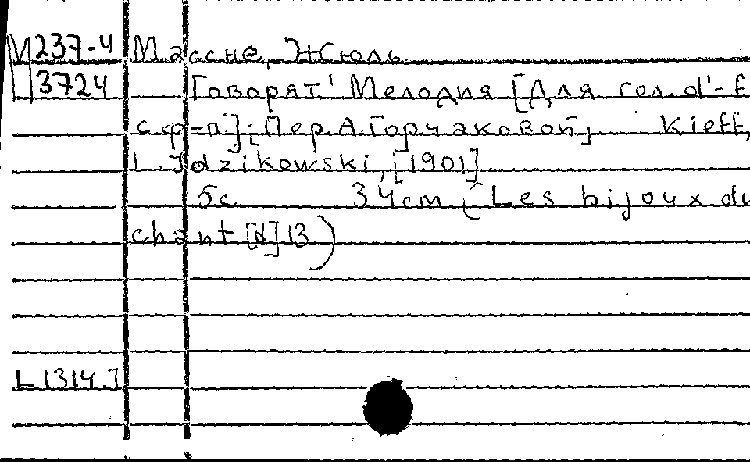 М237-4 Массне, Жюль
3724 Говорят! Мелодия [Для гол. d'-f
с ф-п]; Пер. А. Горчаковой; Kieff,
L. Idzikowski, [1901]
5с. 34cm (Les bijoux du
chant [d] 13)
L1314]